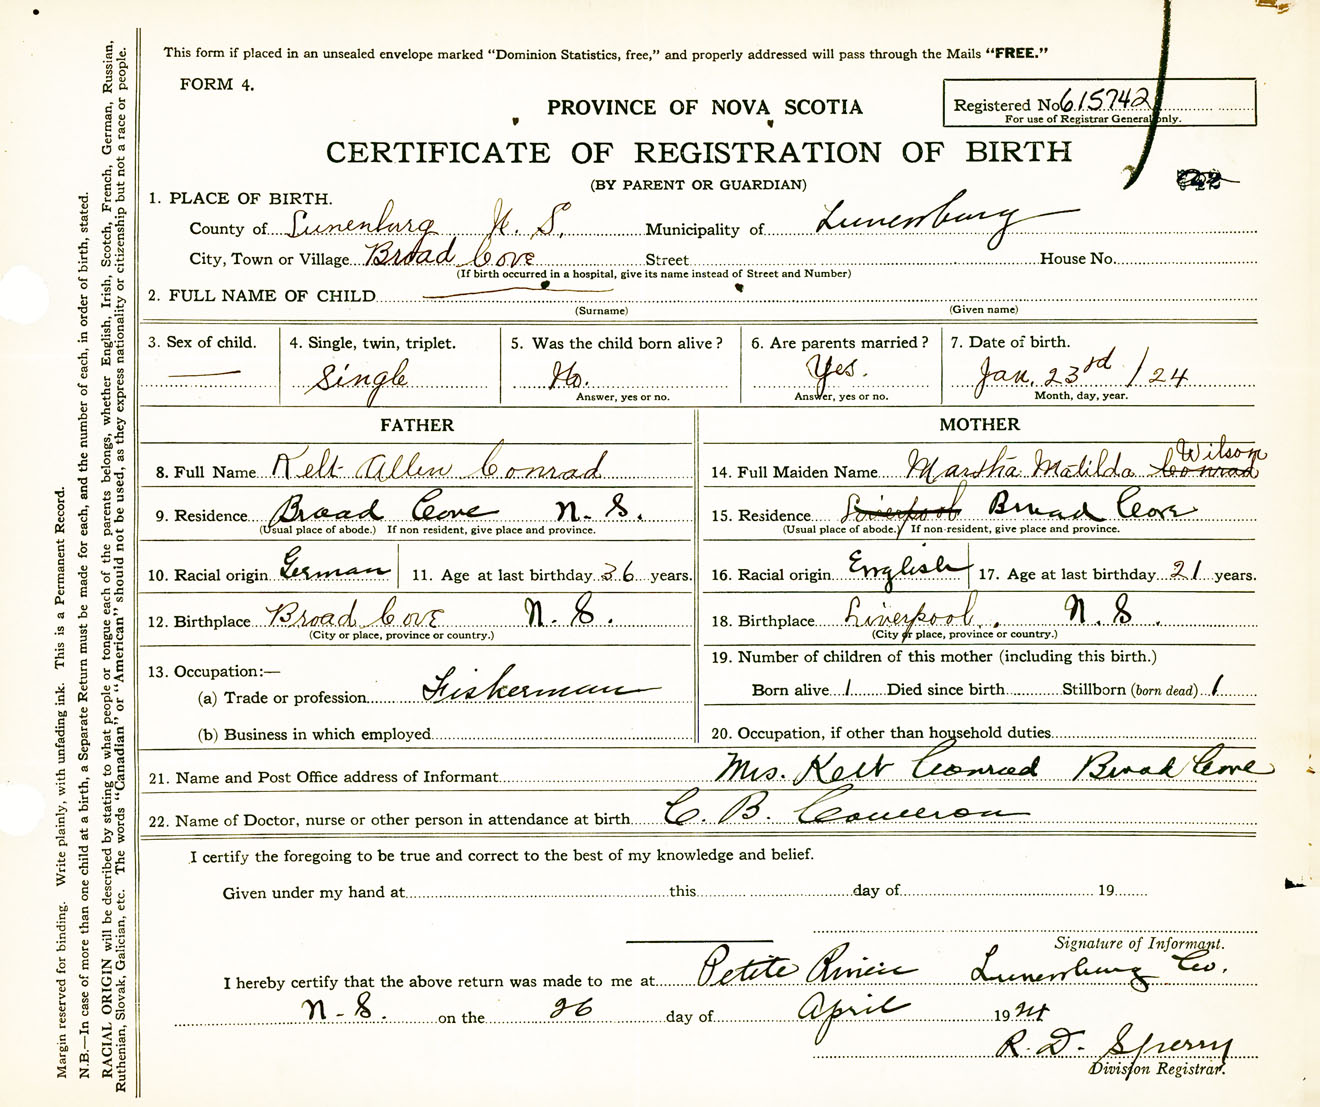 This form if placed in an unsealed envelope marked “Dominion Statistics, free,” and properly addressed will pass through the Mails “FREE.”
FORM 4.
Registered No 615742
For use of Registrar General only.
PROVINCE OF NOVA SCOTIA
CERTIFICATE OF REGISTRATION OF BIRTH
(BY PARENT OR GUARDIAN)
1. PLACE OF BIRTH.
County of Lunenburg N. S. Municipality of Lunenburg
City, Town or Village Broad Cove Street House No.
(If birth occurred in a hospital, give its name instead of Street and Number)
2. FULL NAME OF CHILD
(Surname) (Given name)
3. Sex of child. 4. Single, twin, triplet. 5. Was the child born alive? 6. Are parents married? 7. Date of birth.
Single No. Yes. Jan. 23rd /24
Answer, yes or no. Answer, yes or no. Month, day, year.
FATHER MOTHER
8. Full Name Kelt Allen Conrad 14. Full Maiden Name Martha Matilda Conrad Wilson
9. Residence Broad Cove N. S. 15. Residence Liverpool Broad Cove
(Usual place of abode.) If non resident, give place and province. (Usual place of abode.) If non-resident, give place and province.
10. Racial origin German 11. Age at last birthday 36 years. 16. Racial origin English 17. Age at last birthday 21 years.
12. Birthplace Broad Cove N. S. 18. Birthplace Liverpool, N. S.
(City or place, province or country.) (City or place, province or country.)
13. Occupation:— 19. Number of children of this mother (including this birth.)
(a) Trade or profession Fisherman Born alive 1 Died since birth Stillborn (born dead) 1
(b) Business in which employed 20. Occupation, if other than household duties
21. Name and Post Office address of Informant Mrs. Kelt Conrad Broad Cove
22. Name of Doctor, nurse or other person in attendance at birth C. B. Cameron
I certify the foregoing to be true and correct to the best of my knowledge and belief.
Given under my hand at this day of 19
Signature of Informant.
I hereby certify that the above return was made to me at Petite Riviere Lunenburg Co.
N. S. on the 26 day of April 1924
R. D. Sperry
Division Registrar.
Margin reserved for binding. Write plainly, with unfading ink. This is a Permanent Record.
N.B.—In case of more than one child at a birth, a Separate Return must be made for each, and the number of each, in order of birth, stated.
RACIAL ORIGIN will be described by stating to what people or tongue each of the parents belongs, whether English, Irish, Scotch, French, German, Russian,
Ruthenian, Slovak, Galician, etc. The words “Canadian” or “American” should not be used, as they express nationality or citizenship but not a race or people.